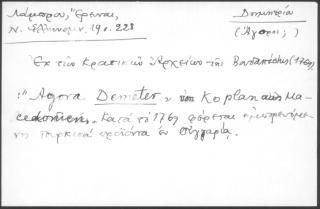 Λάμπρου, Ἔρευναι,
Ν. Ἑλληνομν. 19, σ. 228
Δημητρία
(Ἀγορά;)
Ἐκ τῶν Κρατικῶν Ἀρχείων τῆς Βουδαπέστης (1769)
:"Agora Demeter, ἐκ Koplan
Macedoniens. Κατὰ τὸ 1769 φέρεται ἐμπορευόμε-
νη τουρκικὰ προϊόντα ἐν Οὐγγαρίᾳ.